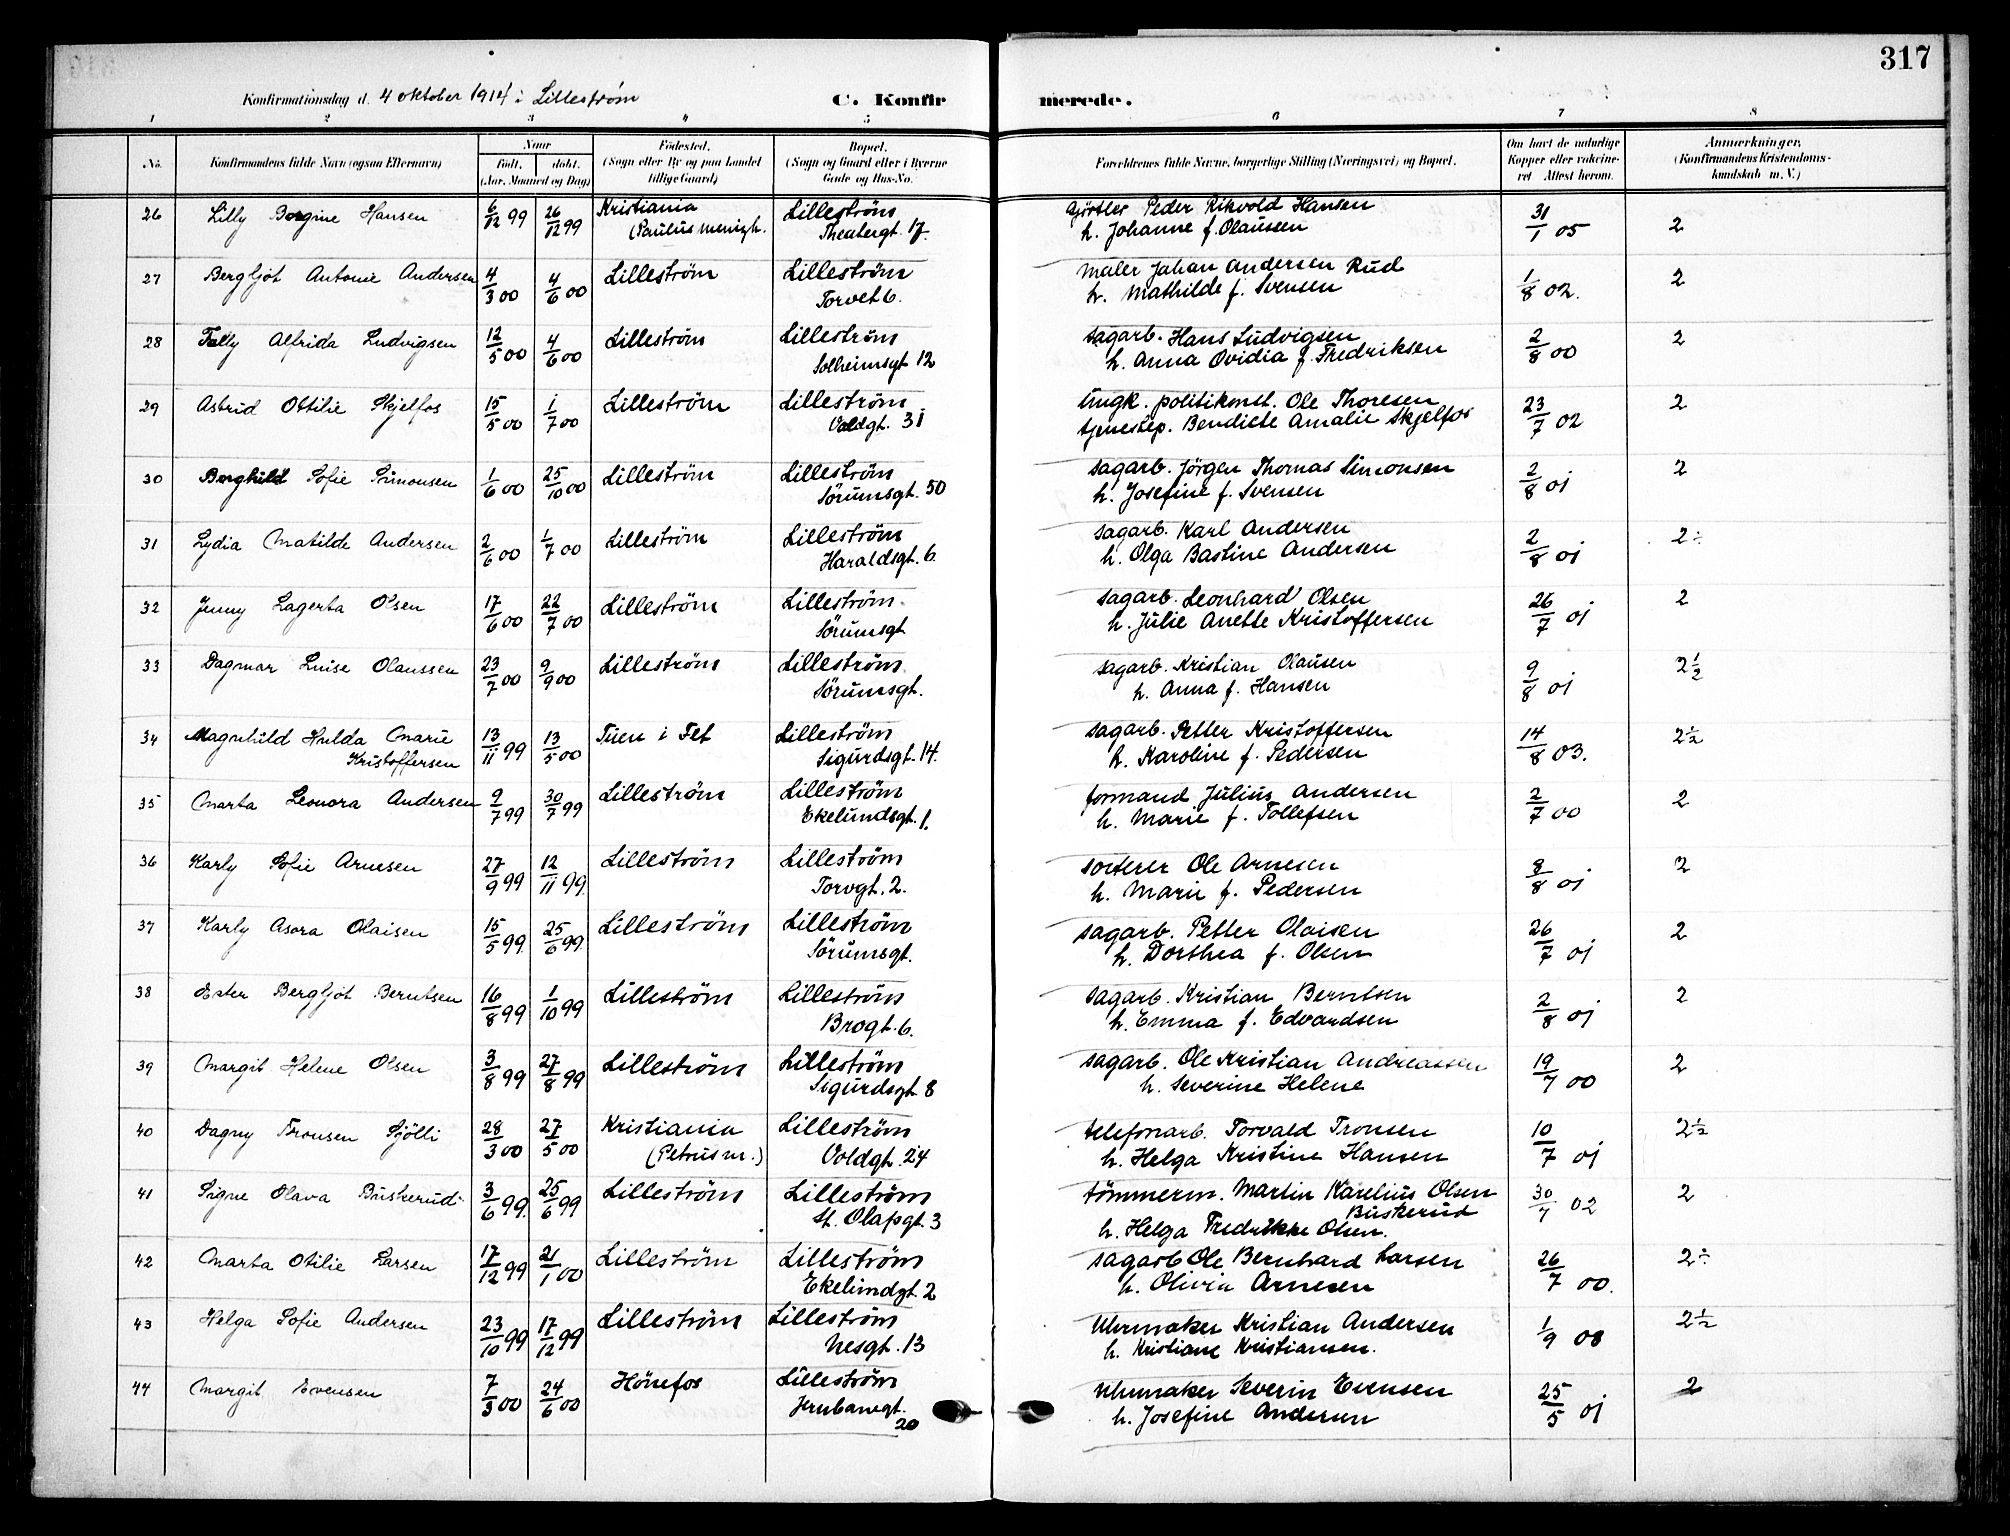 317
Konfirmationsdag d. 4 oktober 1914 i Lilleström C. Konfirmerede.
1 2 3 4 5 6 7 8
No. Konfirmandens fulde Navn (ogsaa Efternavn) Naar Fødested. Bopæl. Forældrenes fulde Navne, borgerlige Stilling (Næringsvei) og Bopæl. Om havt de naturlige Anmerkninger,
født. døbt. (Sogn eller By og paa Landet (Sogn og Gaard eller i Byerne Kopper eller vakcine- (Konfirmandens Kristendoms-
(Aar, Maaned og Dag) tillige Gaard) Gade og Hus-No. ret. Attest herom. kundskab m. V.)
26 Lilly Borgine Hansen 6/12 99 26/12 99 Kristiania Lilleström Gjörtler Peder Rikvold Hansen 31/1 05 2
(Paulus menigh. Theatergt. 17. h. Johanne f. Olaussen
27 Bergljot Antonie Andersen 4/3 00 4/6 00 Lilleström Lilleström Maler Johan Andersen Rud 1/8 02. 2
Torvet 6. h. Mathilde f. Svensen
28 Tally Alfrida Ludvigsen 12/5 00 4/6 00 Lilleström Lilleström sagarb. Hans Ludvigsen 2/8 00 2
Solheimsgt 12 h. Anna Ovidia f. Fredriksen
29 Astrid Ottilie Skjelfos 15/5 00 1/7 00 Lilleström Lilleström Ungk. politikonst. Ole Thoresen 23/7 02 2
Voldgt. 31 tjenestep. Bendicte Amalie Skjelfos
30 Borghild Sofie Simonsen 1/6 00 25/10 00 Lilleström Lilleström sagarb. Jörgen Thomas Simonsen 2/8 01 2
Sörumsgt. 50 h. Josefine f. Svensen
31 Lydia Matilde Andersen 2/6 00 1/7 00 Lilleström Lilleström sagarb. Karl Andersen 2/8 01 2÷
Haraldsgt. 6. h. Olga Bastine Andersen
32 Jenny Lagerta Olsen 17/6 00 22/7 00 Lilleström Lilleström. sagarb. Leonhard Olsen 26/7 01 2
Sörumsgt h. Julie Anette Kristoffersen
33 Dagmar Luise Olaussen 23/7 00 9/9 00 Lilleström Lilleström. sagarb. Kristian Olausen 9/8 01 2 1/2
Sörumsgt. h. Anna f. Hansen
34 Magnhild Hulda Marie 13/11 99 13/5 00 Tuen i Fet Lilleström sagarb. Petter Kristoffersen 14/8 03. 2 1/2
Kristoffersen Sigurdsgt. 14. h. Karoline f. Pedersen
35 Marta Leonora Andersen 9/7 99 30/7 99 Lilleström Lilleström formand Julius Andersen 2/7 00 2
Ekelundsgt. 1. h. Marie f. Tollefsen
36 Karly Sofie Arnesen 27/9 99 12/11 99. Lilleström Lilleström sorterer Ole Arnesen 8/8 01 2
Torvgt. 2. h. Marie f. Pedersen
37 Karly Asora Olaisen 15/5 99. 25/6 99. Lilleström Lilleström sagarb. Petter Olaisen 26/7 01 2
Sörumsgt. h. Dorthea f. Olsen
38 Ester Bergljot Berntsen 16/8 99 1/10 99 Lilleström Lilleström sagarb. Kristian Berntsen 2/8 01 2
Brogt. 6. h. Emma f. Edvardsen
39 Margit Helene Olsen 3/8 99 27/8 99 Lilleström Lilleström sagarb. Ole Kristian Andreassen 19/7 00 2
Sigurdsgt 8 h. Severine Helene
40 Dagny Tronsen Sjölli 28/3 00 27/5 00 Kristiania Lilleström telefonarb. Torvald Tronsen 10/7 01 2 1/2
(Petrus m.) Voldgt. 24 h. Helga Kristine Hansen
41 Signe Olava Buskerud 3/6 99. 25/6 99 Lilleström Lilleström tömmerm. Martin Karelius Olsen 30/7 02 2
St. Olafsgt. 3 Buskerud
h. Helga Fredrikke Olsen.
42 Marta Otilie Larsen 17/12 99 21/1 00 Lilleström Lilleström sagarb Ole Bernhard Larsen 26/7 00. 2÷
Ekelundgt 2 h. Olivia Arnesen
43 Helga Sofie Andersen 23/10 99 17/12 99 Lilleström Lilleström Uhrmaker Kristian Andersen 1/9 08 2 1/2
Nesgt. 13 h. Kristiane Kristiansen.
44 Margit Evensen 7/3 00 24/6 00 Hönefos Lilleström Uhrmaker Severin Evensen 25/5 01 2
Jernbanegt. h. Josefine Andersen
20